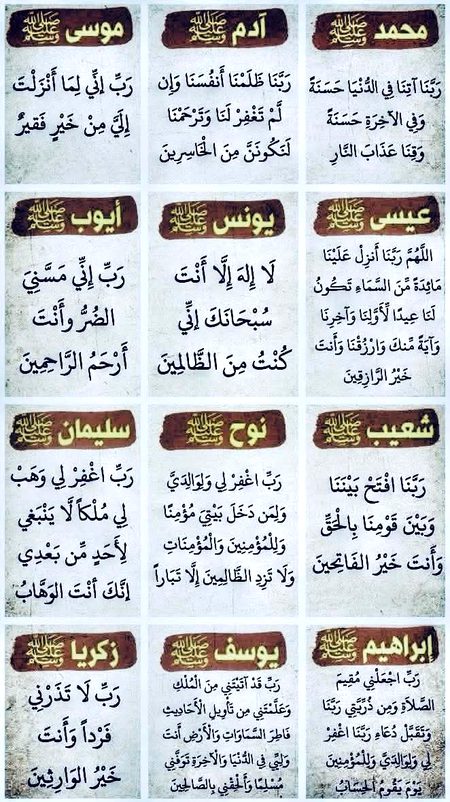 محمد ﷺ
رَبَّنَا آتِنَا فِي الدُّنْيَا حَسَنَةً
وَفِي الآخِرَةِ حَسَنَةً
وَقِنَا عَذَابَ النَّارِ
آدم ﷺ
رَبَّنَا ظَلَمْنَا أَنفُسَنَا وَإِن
لَّمْ تَغْفِرْ لَنَا وَتَرْحَمْنَا
لَنَكُونَنَّ مِنَ الْخَاسِرِينَ
موسى ﷺ
رَبِّ إِنِّي لِمَا أَنْزَلْتَ
إِلَيَّ مِنْ خَيْرٍ فَقِيرٌ
عيسى ﷺ
اللَّهُمَّ رَبَّنَا أَنزِلْ عَلَيْنَا
مَائِدَةً مِّنَ السَّمَاءِ تَكُونُ
لَنَا عِيدًا لِّأَوَّلِنَا وَآخِرِنَا
وَآيَةً مِّنكَ وَارْزُقْنَا وَأَنتَ
خَيْرُ الرَّازِقِينَ
يونس ﷺ
لَا إِلَهَ إِلَّا أَنْتَ
سُبْحَانَكَ إِنِّي
كُنْتُ مِنَ الظَّالِمِينَ
أيوب ﷺ
رَبِّ إِنِّي مَسَّنِيَ
الضُّرُّ وأَنْتَ
أَرْحَمُ الرَّاحِمِينَ
شعيب ﷺ
رَبَّنَا افْتَحْ بَيْنَنَا
وَبَيْنَ قَوْمِنَا بِالْحَقِّ
وَأَنتَ خَيْرُ الفَاتِحِينَ
نوح ﷺ
رَبِّ اغْفِرْ لِي وَلِوَالِدَيَّ
وَلِمَن دَخَلَ بَيْتِيَ مُؤْمِنًا
وَلِلْمُؤْمِنِينَ وَالْمُؤْمِنَاتِ
وَلَا تَزِدِ الظَّالِمِينَ إِلَّا تَبَاراً
سليمان ﷺ
رَبِّ اغْفِرْ لِي وَهَبْ
لِي مُلْكاً لَّا يَنبَغِي
لِأَحَدٍ مِّن بَعْدِي
إِنَّكَ أَنْتَ الوَهَّابُ
إبراهيم ﷺ
رَبِّ اجْعَلْنِي مُقِيمَ
الصَّلَاةِ وَمِن ذُرِّيَّتِي رَبَّنَا
وَتَقَبَّلْ دُعَاءِ رَبَّنَا اغْفِرْ
لِي وَلِوَالِدَيَّ وَلِلْمُؤْمِنِينَ
يَوْمَ يَقُومُ الْحِسَابُ
يوسف ﷺ
رَبِّ قَدْ آتَيْتَنِي مِنَ الْمُلْكِ
وَعَلَّمْتَنِي مِن تَأْوِيلِ الأَحَادِيثِ
فَاطِرَ السَّمَاوَاتِ وَالأَرْضِ أَنتَ
وَلِيِّي فِي الدُّنْيَا وَالآخِرَةِ تَوَفَّنِي
مُسْلِمًا وَأَلْحِقْنِي بِالصَّالِحِينَ
زكريا ﷺ
رَبِّ لَا تَذَرْنِي
فَرْداً وَأَنتَ
خَيْرُ الْوَارِثِينَ